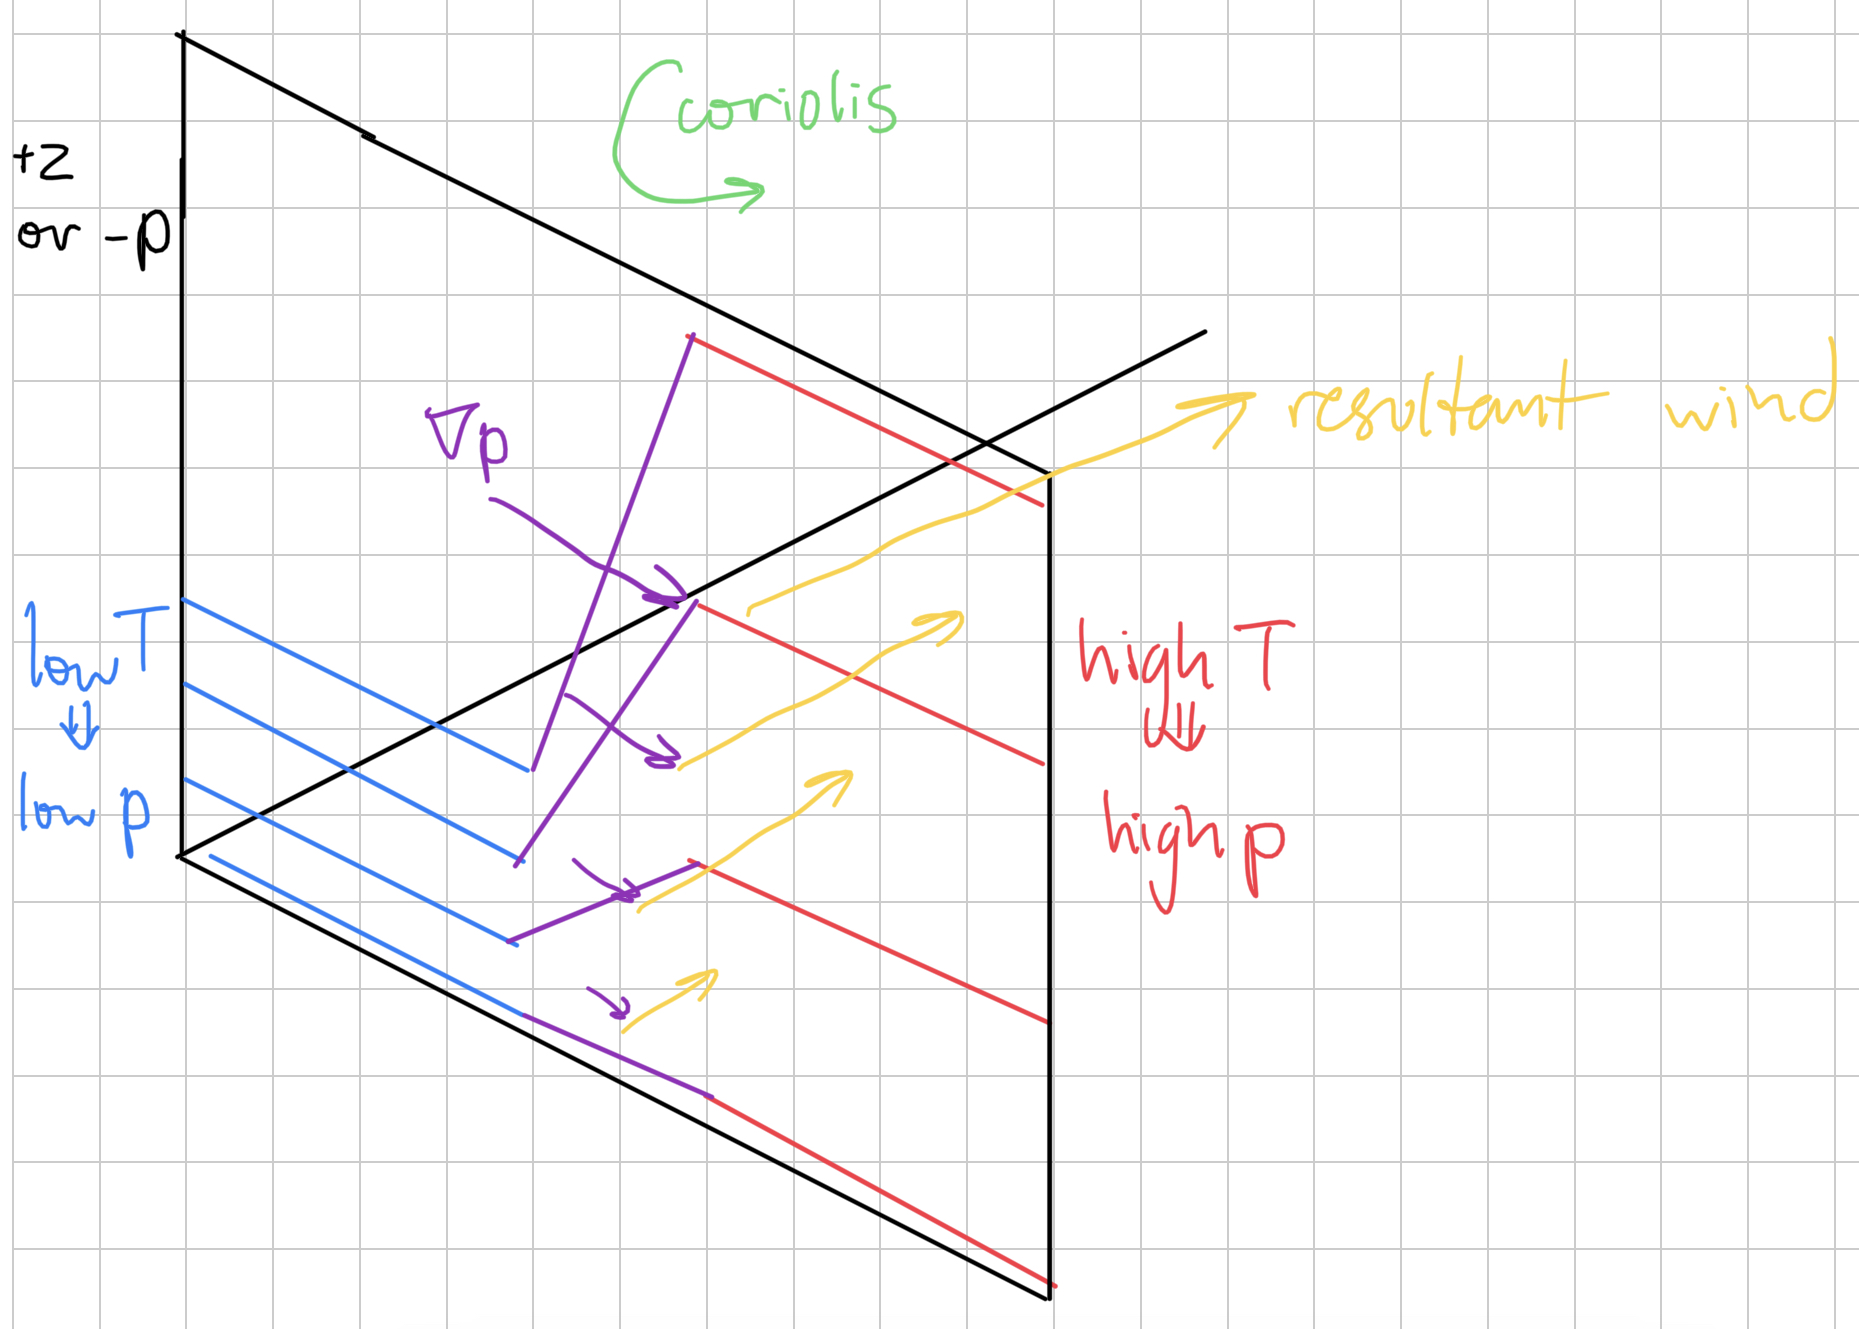 coriolis
+z
or -p
∇p
resultant wind
low T
⇓
low p
high T
⇓
high p